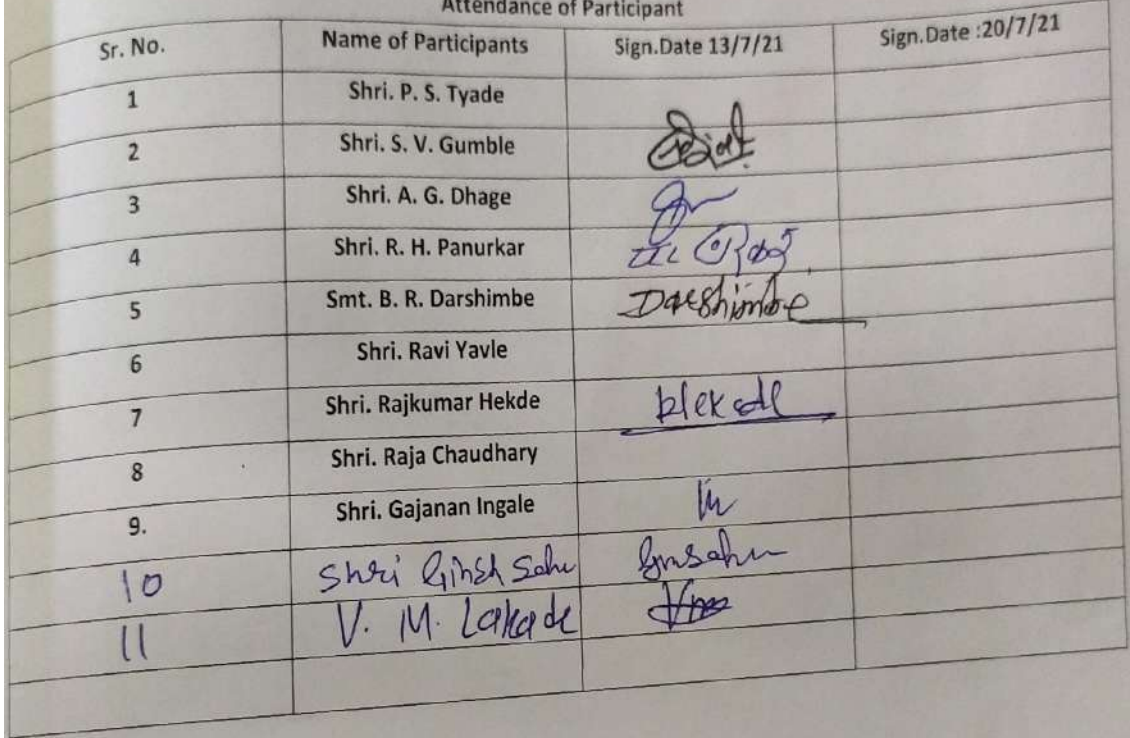 Attendance of Participant
Sr. No. Name of Participants Sign.Date 13/7/21 Sign.Date :20/7/21
1 Shri. P. S. Tyade
2 Shri. S. V. Gumble
3 Shri. A. G. Dhage
4 Shri. R. H. Panurkar
5 Smt. B. R. Darshimbe Darshimbe
6 Shri. Ravi Yavle
7 Shri. Rajkumar Hekde
8 Shri. Raja Chaudhary
9. Shri. Gajanan Ingale
10 Shri Girish Sahu Gmsahu
11 V. M. Lakade